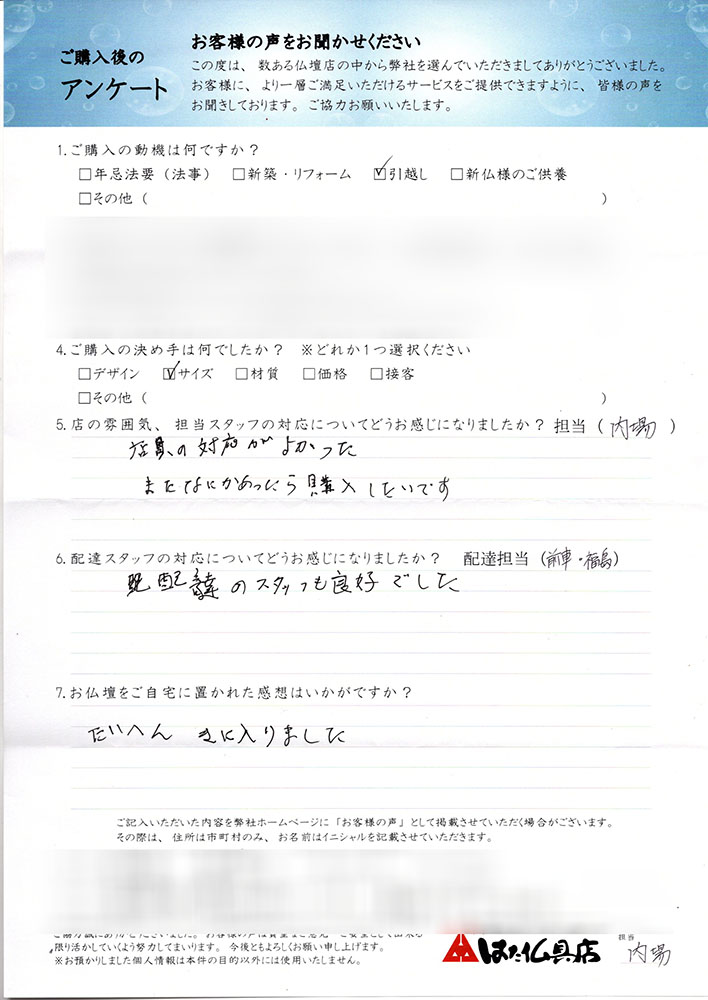 ご購入後の
アンケート
お客様の声をお聞かせください
この度は、数ある仏壇店の中から弊社を選んでいただきましてありがとうございました。
お客様に、より一層ご満足いただけるサービスをご提供できますように、皆様の声を
お聞きしております。ご協力お願いいたします。
1.ご購入の動機は何ですか?
□年忌法要(法事) □新築・リフォーム ☑引越し □新仏様のご供養
□その他( )
4.ご購入の決め手は何でしたか? ※どれか1つ選択ください
□デザイン ☑サイズ □材質 □価格 □接客
□その他( )
5.店の雰囲気、担当スタッフの対応についてどうお感じになりましたか?担当(内場)
店員の対応がよかった
またなにかあったら購入したいです
6.配達スタッフの対応についてどうお感じになりましたか? 配達担当(前車・福島)
配達のスタッフも良好でした
7.お仏壇をご自宅に置かれた感想はいかがですか?
たいへん きに入りました
ご記入いただいた内容を弊社ホームページに「お客様の声」として掲載させていただく場合がございます。
その際は、住所は市町村のみ、お名前はイニシャルを記載させていただきます。
限り活かしていくよう努力してまいります。今後ともよろしくお願い申し上げます。
※お預かりしました個人情報は本件の目的以外には使用いたしません。
はた仏具店
担当
内場